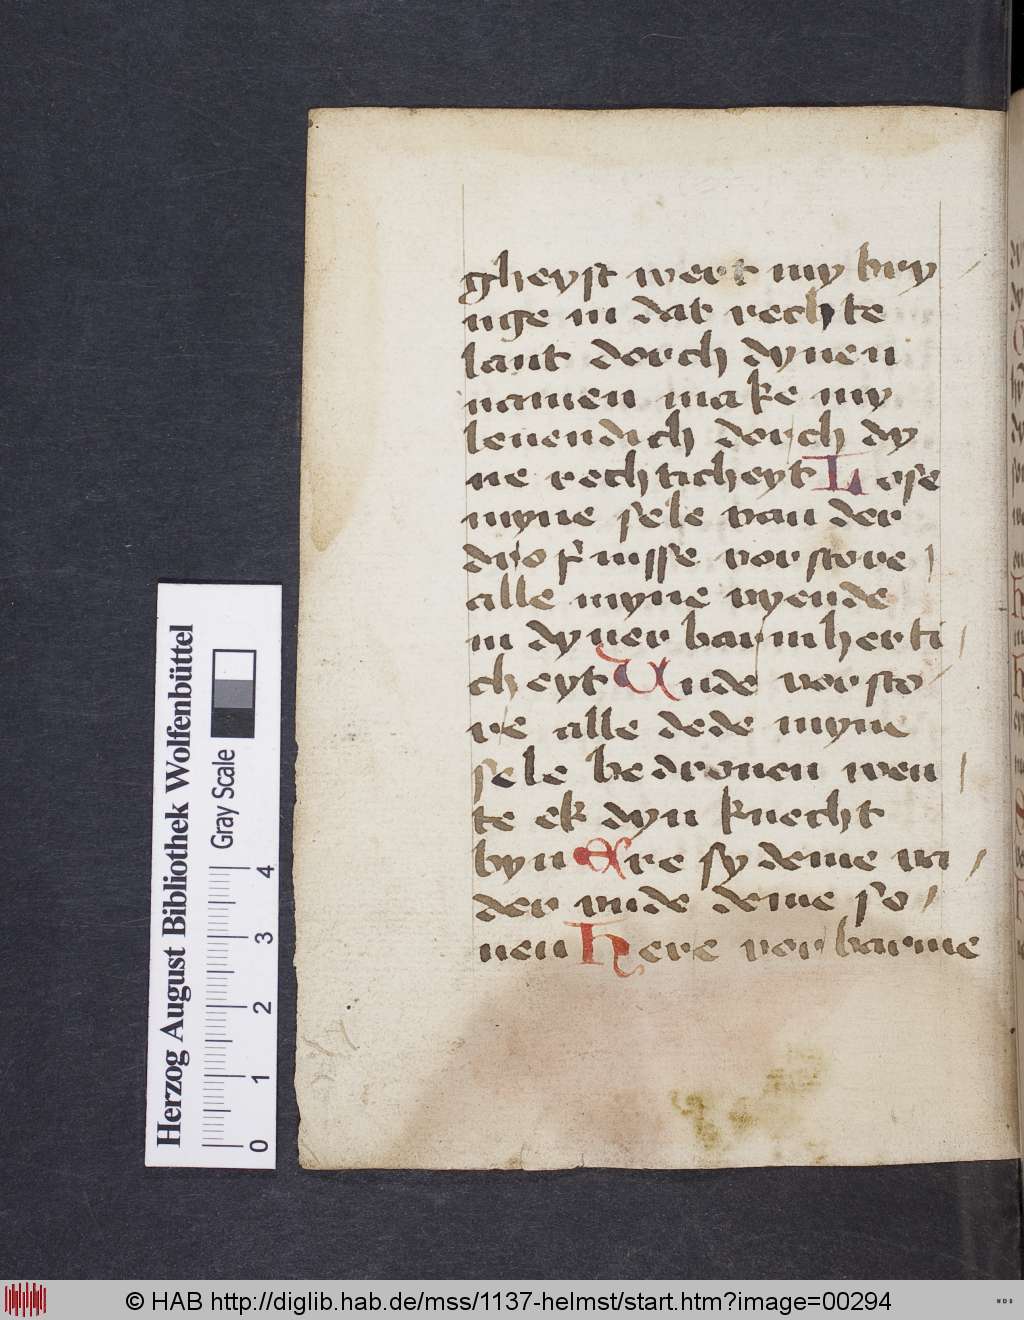 gheyst wert my bry
nge in dat rechte
lant dorch dynen
namen make my
leuendich dorch dy
ne rechticheyt Lose
myne sele van der
drofnisse vorstore
alle myne vyende
in dyner barmherti
cheyt Unde vorsto
re alle dede myne
sele bedrouen wen
te ek dyn knecht
byn Ere sy deme va
der vnde deme so
nen Here vorbarme
Herzog August Bibliothek Wolfenbüttel
Gray Scale
0 1 2 3 4
© HAB http://diglib.hab.de/mss/1137-helmst/start.htm?image=00294